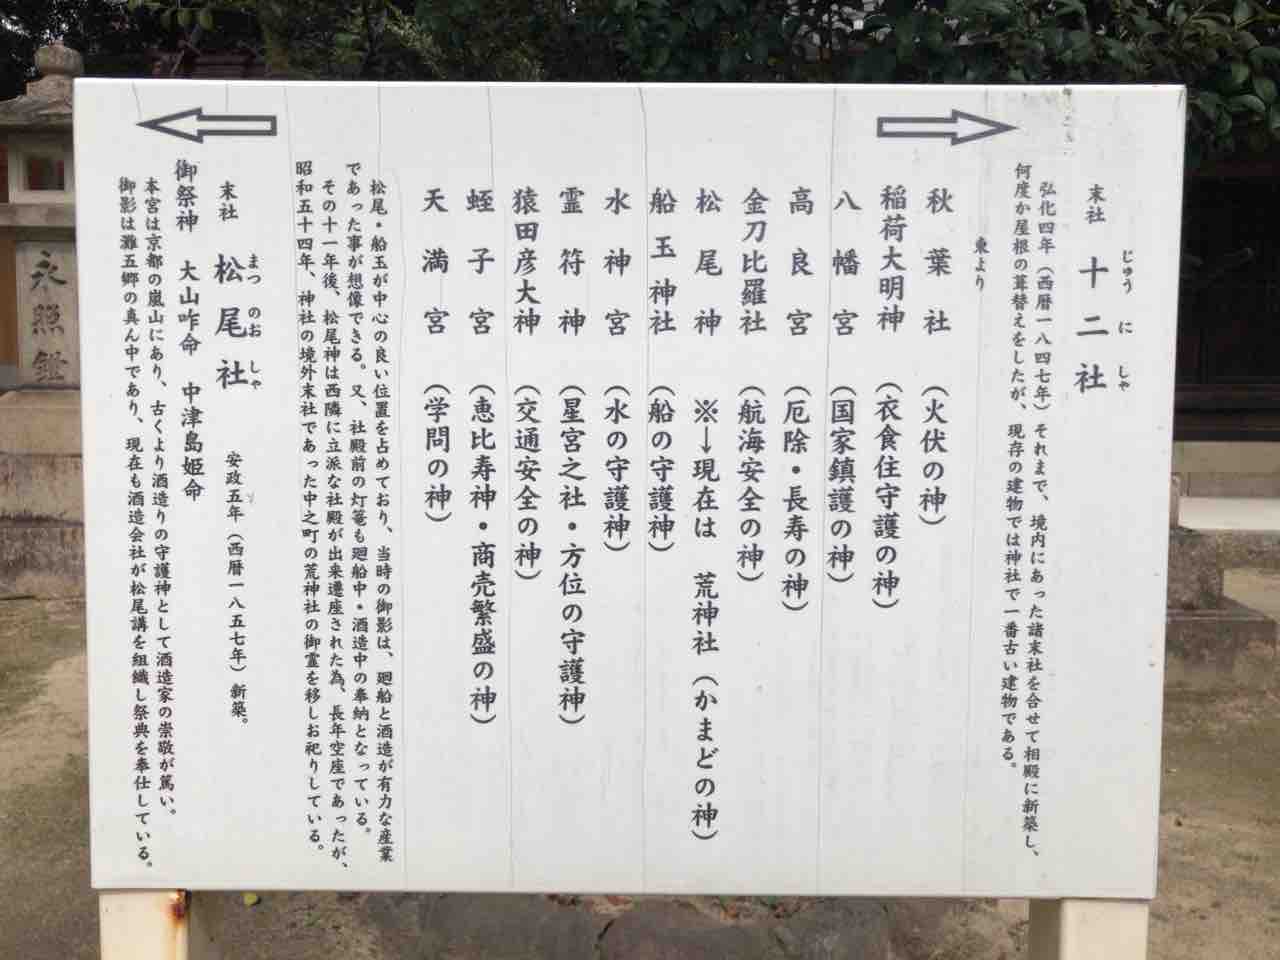 末社 十二社
じゅう に しゃ
弘化四年（西暦一八四七年）それまで、境内にあった諸末社を合せて相殿に新築し、
何度か屋根の葺替えをしたが、現存の建物では神社で一番古い建物である。
東より
秋葉社（火伏の神）
稲荷大明神（衣食住守護の神）
八幡宮（国家鎮護の神）
高良宮（厄除・長寿の神）
金刀比羅社（航海安全の神）
松尾神 ※↓現在は 荒神社（かまどの神）
船玉神社（船の守護神）
水神宮（水の守護神）
霊符神（星宮之社・方位の守護神）
猿田彦大神（交通安全の神）
蛭子宮（恵比寿神・商売繁盛の神）
天満宮（学問の神）
松尾・船玉が中心の良い位置を占めており、当時の御影は、廻船と酒造が有力な産業
であった事が想像できる。又、社殿前の灯篭も廻船中・酒造中の奉納となっている。
その十一年後、松尾神は西隣に立派な社殿が出来遷座された為、長年空座であったが、
昭和五十四年、神社の境外末社であった中之町の荒神社の御霊を移しお祀りしている。
末社 松尾社 安政五年（西暦一八五七年）新築。
まつ のお しゃ
御祭神 大山咋命 中津島姫命
本宮は京都の嵐山にあり、古くより酒造りの守護神として酒造家の崇敬が篤い。
御影は灘五郷の真ん中であり、現在も酒造会社が松尾講を組織し祭典を奉仕している。
永照鑑